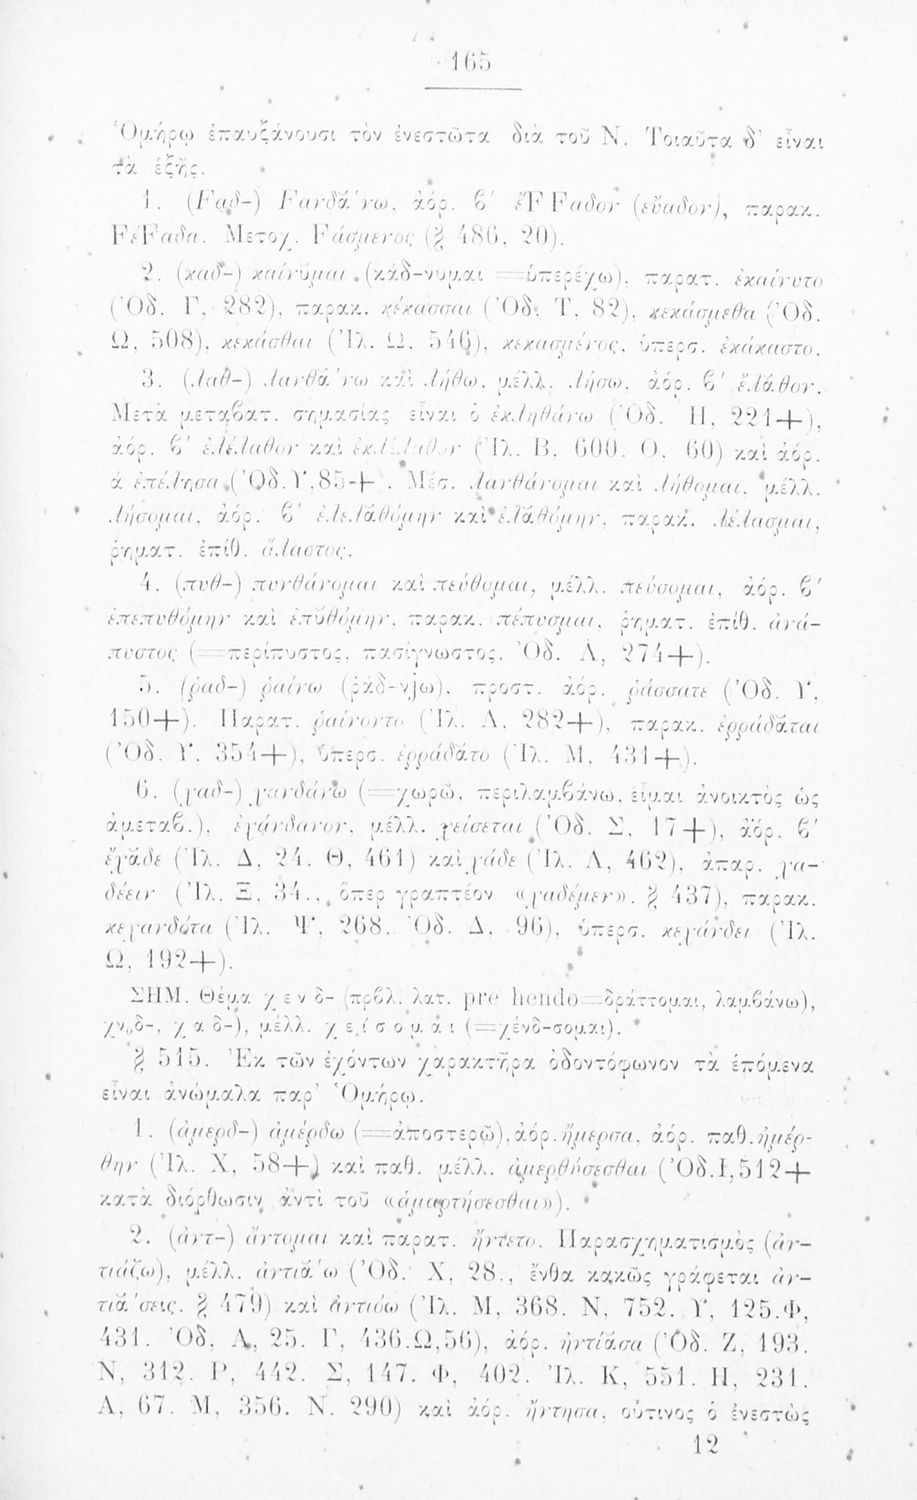 165
Ὁμήρῳ ἐπαυξάνουσι τὸν ἐνεστῶτα διὰ τοῦ Ν. Τοιαῦτα δ' εἶναι
τὰ ἑξῆς.
1. (Fαδ-) Fανδά̆νω, ἀόρ. β' ἔFFαδον (εὔαδον), παρακ.
FέFαδα. Μετοχ. Fάσμενος (§ 486, 20).
2. (καδ-) καίνῠμαι (κάδ-νυμαι =ὑπερέχω), παρατ. ἐκαίνυτο
(Ὀδ. Γ, 282), παρακ. κέκασσαι (Ὀδ. Τ, 82), κεκάσμεθα (Ὀδ.
Ω, 508), κεκάσθαι (Ἰλ. Ω, 546), κεκασμένος, ὑπερσ. ἐκάκαστο.
3. (λαθ-) λανθά̆νω καὶ λήθω, μέλλ. λήσω, ἀόρ. β' ἔλᾰθον.
Μετὰ μεταβατ. σημασίας εἶναι ὁ ἐκληθάνω (Ὀδ. Η, 221+),
ἀόρ. β' ἐλέλαθον καὶ ἐκλέλαθον (Ἰλ. Β, 600. Ο, 60) καὶ ἀόρ.
ά ἐπέλησα (Ὀδ.Υ,85+). Μέσ. λανθάνομαι καὶ λήθομαι, μέλλ.
λήσομαι, ἀόρ. β' ἐλελᾰθόμην καὶ ἐλᾰθόμην, παρακ. λέλασμαι,
ῥηματ. ἐπίθ. ἄλαστος.
4. (πυθ-) πυνθάνομαι καὶ πεύθομαι, μέλλ. πεύσομαι, ἀόρ. β'
ἐπεπυθόμην καὶ ἐπῠθόμην, παρακ. πέπυσμαι, ῥηματ. ἐπίθ. ἀνά-
πυστος (=περίπυστος, πασίγνωστος. Ὀδ. Λ, 274+).
5. (ῥαδ-) ῥαίνω (ῥάδ-νjω), προστ. ἀόρ. ῥάσσατε (Ὀδ. Υ,
150+). Παρατ. ῥαίνοντο (Ἰλ. Λ, 282+), παρακ. ἐρράδᾰται
(Ὀδ. Υ, 354+), ὑπερσ. ἐρράδᾰτο (Ἰλ. Μ, 431+).
6. (χαδ-) χανδάνω (=χωρῶ, περιλαμβάνω, εἶμαι ἀνοικτὸς ὡς
ἀμεταβ.), ἐχάνδανον, μέλλ. χείσεται (Ὀδ. Σ, 17+), ἀόρ. β'
ἔχᾰδε (Ἰλ. Δ, 24. Θ, 461) καὶ χάδε (Ἰλ. Λ, 462), ἀπαρ. χα-
δέειν (Ἰλ. Ξ, 34., ὅπερ γραπτέον «χαδέμεν». § 437), παρακ.
κεχανδότα (Ἰλ. Ψ, 268. Ὀδ. Δ, 96), ὑπερσ. κεχάνδει (Ἰλ.
Ω, 192+).
ΣΗΜ. Θέμα χ ε ν δ- (πρβλ. λατ. pre hendo=δράττομαι, λαμβάνω),
χνυδ-, χ α δ-), μέλλ. χ ε ί σ ο μ α ι (=χένδ-σομαι).
§ 515. Ἐκ τῶν ἐχόντων χαρακτῆρα ὀδοντόφωνον τὰ ἑπόμενα
εἶναι ἀνώμαλα παρ' Ὁμήρῳ.
1. (ἀμερδ-) ἀμέρδω (=ἀποστερῶ), ἀόρ. ἤμερσα, ἀόρ. παθ. ἠμέρ-
θην (Ἰλ. Χ, 58+) καὶ παθ. μέλλ. ἀμερθήσεσθαι (Ὀδ.Ι,512+
κατὰ διόρθωσιν ἀντὶ τοῦ «ἁμαρτήσεσθαι»).
2. (ἀντ-) ἄντομαι καὶ παρατ. ἤντετο. Παρασχηματισμὸς (ἀν-
τιάζω), μέλλ. ἀντιᾰ́ω (Ὀδ. Χ, 28., ἔνθα κακῶς γράφεται ἀν-
τιᾰ́σεις. § 479) καὶ ἀντιόω (Ἰλ. Μ, 368. Ν, 752. Υ, 125.Φ,
431. Ὀδ. Α, 25. Γ, 436.Ω,56), ἀόρ. ἠντίᾰσα (Ὀδ. Ζ, 193.
Ν, 312. Ρ, 442. Σ, 147. Φ, 402. Ἰλ. Κ, 551. Η, 231.
Α, 67. Μ, 356. Ν. 290) καὶ ἀόρ. ἤντησα, οὗτινος ὁ ἐνεστὼς
12